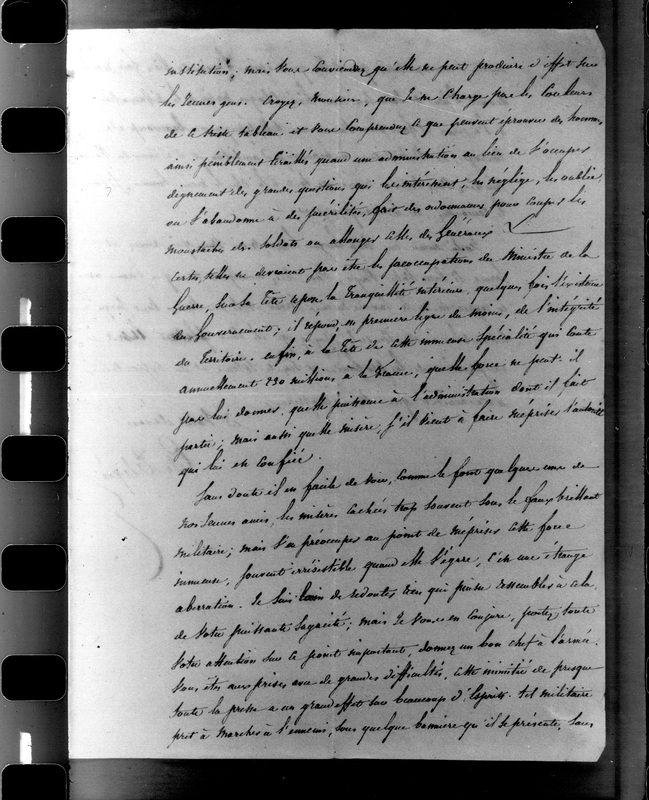 institution; mais vous conviendrez qu'elle ne peut produire d'effet sur
les jeunes gens. Croyez, monsieur, que je ne charge pas les couleurs
de ce triste tableau et vous comprendrez ce que peuvent éprouver des hommes
ainsi péniblement tiraillés quand une administration au lieu de s'occuper
dignement des grandes questions qui les intéressent, les néglige, les oublie
ou s'abandonne à des puérilités, fait des ordonnances pour couper les
moustaches des soldats ou allonger celles des Généraux
Certes, telles ne devraient pas être les préoccupations du Ministre de la
Guerre, sur sa tête repose la tranquillité intérieure, quelques fois l'existence
du Gouvernement; il répond, en première ligne du moins, de l'intégrité
du Territoire. enfin, à la tête de cette immense spécialité qui coute
annuellement 230 millions à la France, quelle force ne peut-il
pas lui donner, quelle puissance à l'administration dont il fait
partie; mais aussi quelle misère, s'il vient à faire mépriser l'autorité
qui lui est confiée.
Sans doute il est facile de voir, comme le font quelques uns de
nos jeunes amis, les misères cachées trop souvent sous le faux brillant
militaire; mais s'en préoccuper au point de mépriser cette force
immense, souvent irrésistible quand elle s'égare, c'est une étrange
aberration. Je suis loin de redouter rien qui puisse ressembler à cela
de votre puissante sagacité; mais je vous en conjure, portez toute
votre attention sur ce point important, donnez un bon chef à l'armée.
Vous êtes aux prises avec de grandes difficultés, cette inimitié de presque
toute la presse a un grand effet sur beaucoup d'esprits. tel militaire
prêt à marcher à l'ennemi, sous quelque bannière qu'il se présente, sans